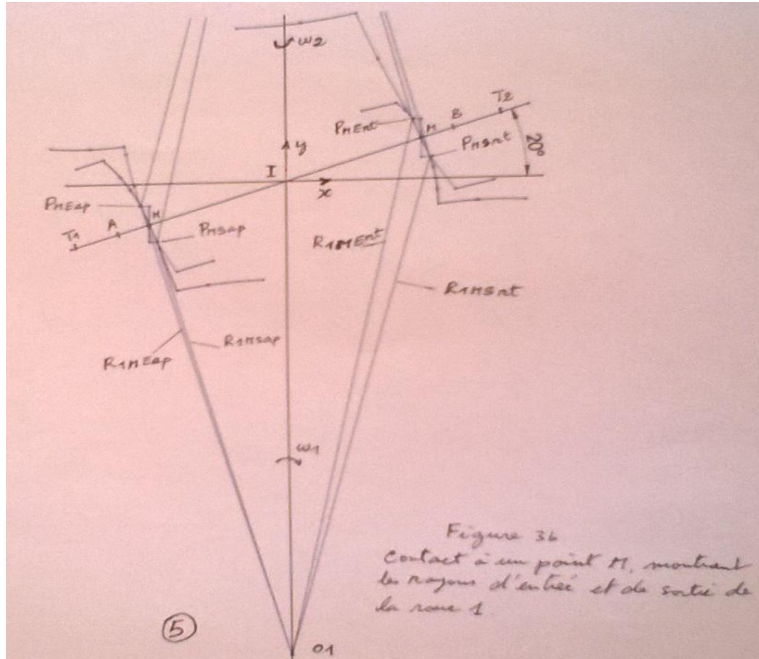 ω2
T2
B
PMEnt
M
PMSnt
20°
y
I
x
PMEap
M
A
T1
PMSap
R1MEnt
R1MSnt
R1MSap
R1MEap
ω1
Figure 3b
Contact à un point M, montrant
les rayons d'entrée et de sortie de
la roue 1
5
O1